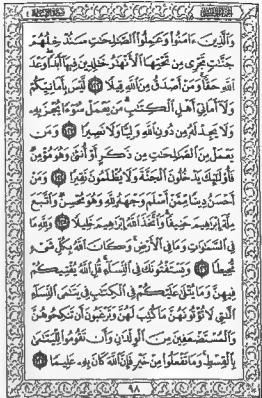 وَالَّذِينَ ءَامَنُوا وَعَمِلُوا الصَّٰلِحَٰتِ سَنُدْخِلُهُمْ
جَنَّٰتٍ تَجْرِى مِن تَحْتِهَا الْأَنْهَٰرُ خَٰلِدِينَ فِيهَآ أَبَدًا وَعْدَ
اللَّهِ حَقًّا وَمَنْ أَصْدَقُ مِنَ اللَّهِ قِيلًا ١٢٢ لَّيْسَ بِأَمَانِيِّكُمْ
وَلَآ أَمَانِىِّ أَهْلِ الْكِتَٰبِ مَن يَعْمَلْ سُوٓءًا يُجْزَ بِهِۦ
وَلَا يَجِدْ لَهُۥ مِن دُونِ اللَّهِ وَلِيًّا وَلَا نَصِيرًا ١٢٣ وَمَن
يَعْمَلْ مِنَ الصَّٰلِحَٰتِ مِن ذَكَرٍ أَوْ أُنثَىٰ وَهُوَ مُؤْمِنٌ
فَأُولَٰٓئِكَ يَدْخُلُونَ الْجَنَّةَ وَلَا يُظْلَمُونَ نَقِيرًا ١٢٤ وَمَنْ
أَحْسَنُ دِينًا مِّمَّنْ أَسْلَمَ وَجْهَهُۥ لِلَّهِ وَهُوَ مُحْسِنٌ وَاتَّبَعَ
مِلَّةَ إِبْرَٰهِيمَ حَنِيفًا وَاتَّخَذَ اللَّهُ إِبْرَٰهِيمَ خَلِيلًا ١٢٥ وَلِلَّهِ مَا
فِى السَّمَٰوَٰتِ وَمَا فِى الْأَرْضِ وَكَانَ اللَّهُ بِكُلِّ شَىْءٍ
مُّحِيطًا ١٢٦ وَيَسْتَفْتُونَكَ فِى النِّسَآءِ قُلِ اللَّهُ يُفْتِيكُمْ
فِيهِنَّ وَمَا يُتْلَىٰ عَلَيْكُمْ فِى الْكِتَٰبِ فِى يَتَٰمَى النِّسَآءِ
الَّٰتِى لَا تُؤْتُونَهُنَّ مَا كُتِبَ لَهُنَّ وَتَرْغَبُونَ أَن تَنكِحُوهُنَّ
وَالْمُسْتَضْعَفِينَ مِنَ الْوِلْدَٰنِ وَأَن تَقُومُوا لِلْيَتَٰمَىٰ
بِالْقِسْطِ وَمَا تَفْعَلُوا مِنْ خَيْرٍ فَإِنَّ اللَّهَ كَانَ بِهِۦ عَلِيمًا ١٢٧
٩٨